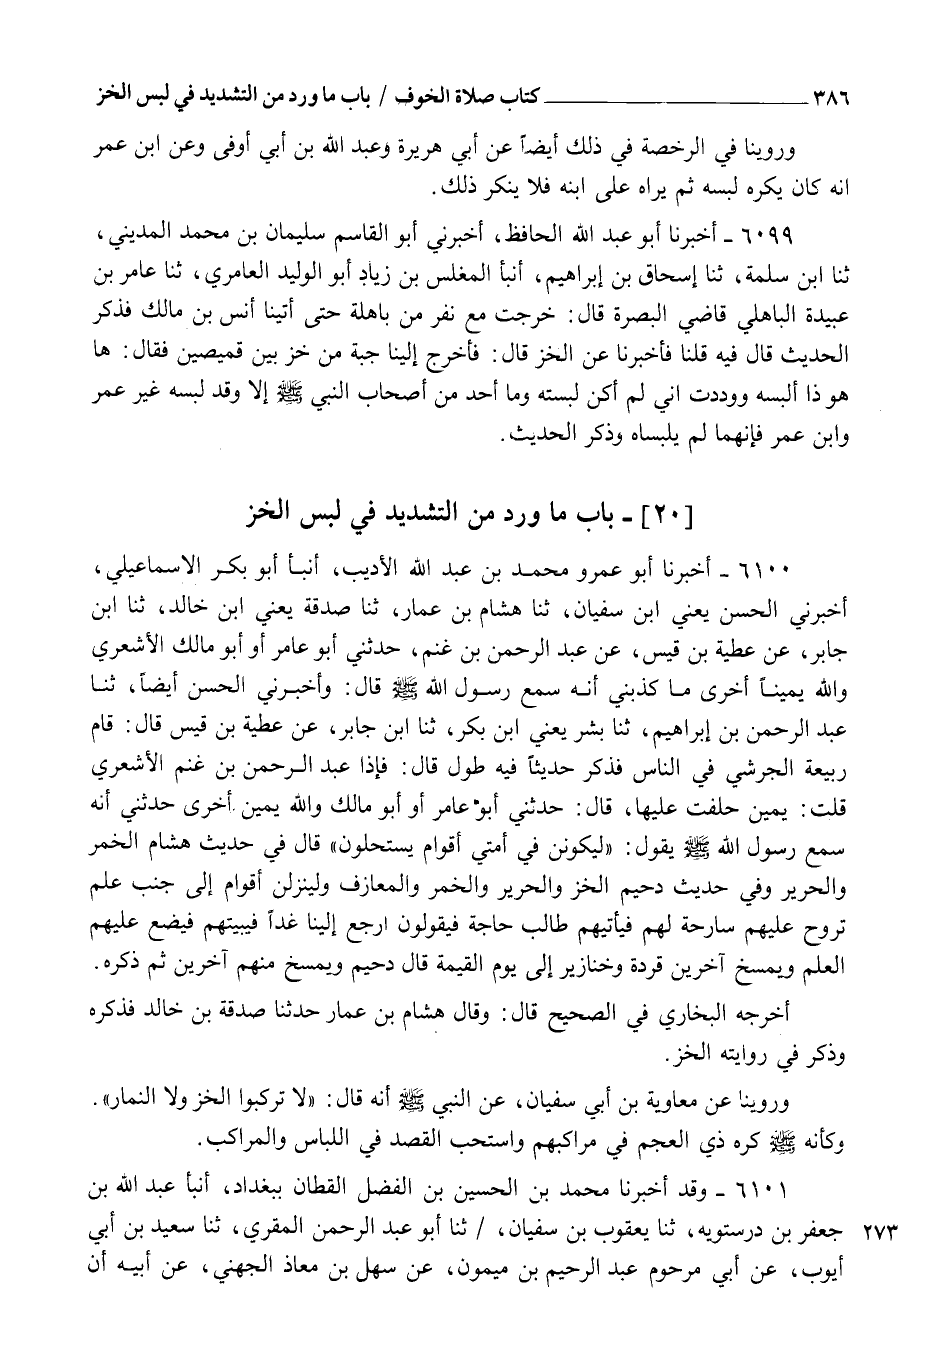 ٣٨٦ ــــــــــــــــــــ كتاب صلاة الخوف / باب ما ورد من التشديد في لبس الخز
وروينا في الرخصة في ذلك أيضاً عن أبي هريرة وعبد الله بن أبي أوفى وعن ابن عمر
انه كان يكره لبسه ثم يراه على ابنه فلا ينكر ذلك.
٦٠٩٩ ـ أخبرنا أبو عبد الله الحافظ، أخبرني أبو القاسم سليمان بن محمد المديني،
ثنا ابن سلمة، ثنا إسحاق بن إبراهيم، أنبأ المغلس بن زيادٍ أبو الوليد العامري، ثنا عامر بن
عبيدة الباهلي قاضي البصرة قال: خرجت مع نفر من باهلة حتى أتينا أنس بن مالك فذكر
الحديث قال فيه قلنا فأخبرنا عن الخز قال: فأخرج إلينا جبة من خز بين قميصين فقال: ها
هو ذا ألبسه ووددت اني لم أكن لبسته وما أحد من أصحاب النبي ﷺ إلا وقد لبسه غير عمر
وابن عمر فإنهما لم يلبساه وذكر الحديث.
[٢٠] ـ باب ما ورد من التشديد في لبس الخز
٦١٠٠ ـ أخبرنا أبو عمرو محمد بن عبد الله الأديب، أنبأ أبو بكر الاسماعيلي،
أخبرني الحسن يعني ابن سفيان، ثنا هشام بن عمار، ثنا صدقة يعني ابن خالد، ثنا ابن
جابر، عن عطية بن قيس، عن عبد الرحمن بن غنم، حدثني أبو عامر أو أبو مالك الأشعري
والله يميناً أخرى ما كذبني أنه سمع رسول الله ﷺ قال: وأخبرني الحسن أيضاً، ثنا
عبد الرحمن بن إبراهيم، ثنا بشر يعني ابن بكر، ثنا ابن جابر، عن عطية بن قيس قال: قام
ربيعة الجرشي في الناس فذكر حديثاً فيه طول قال: فإذا عبد الرحمن بن غنم الأشعري
قلت: يمين حلفت عليها، قال: حدثني أبو عامر أو أبو مالك والله يمين أخرى حدثني أنه
سمع رسول الله ﷺ يقول: «ليكونن في أمتي أقوام يستحلون» قال في حديث هشام الخمر
والحرير وفي حديث دحيم الخز والحرير والخمر والمعازف ولينزلن أقوام إلى جنب علم
تروح عليهم سارحة لهم فيأتيهم طالب حاجة فيقولون ارجع إلينا غداً فيبيتهم فيضع عليهم
العلم ويمسخ آخرين قردة وخنازير إلى يوم القيمة قال دحيم ويمسخ منهم آخرين ثم ذكره.
أخرجه البخاري في الصحيح قال: وقال هشام بن عمار حدثنا صدقة بن خالد فذكره
وذكر في روايته الخز.
وروينا عن معاوية بن أبي سفيان، عن النبي ﷺ أنه قال: «لا تركبوا الخز ولا النمار».
وكأنه ﷺ كره ذي العجم في مراكبهم واستحب القصد في اللباس والمراكب.
٦١٠١ ـ وقد أخبرنا محمد بن الحسين بن الفضل القطان ببغداد، أنبأ عبد الله بن
٢٧٣ جعفر بن درستويه، ثنا يعقوب بن سفيان، / ثنا أبو عبد الرحمن المقري، ثنا سعيد بن أبي
أيوب، عن أبي مرحوم عبد الرحيم بن ميمون، عن سهل بن معاذ الجهني، عن أبيه أن